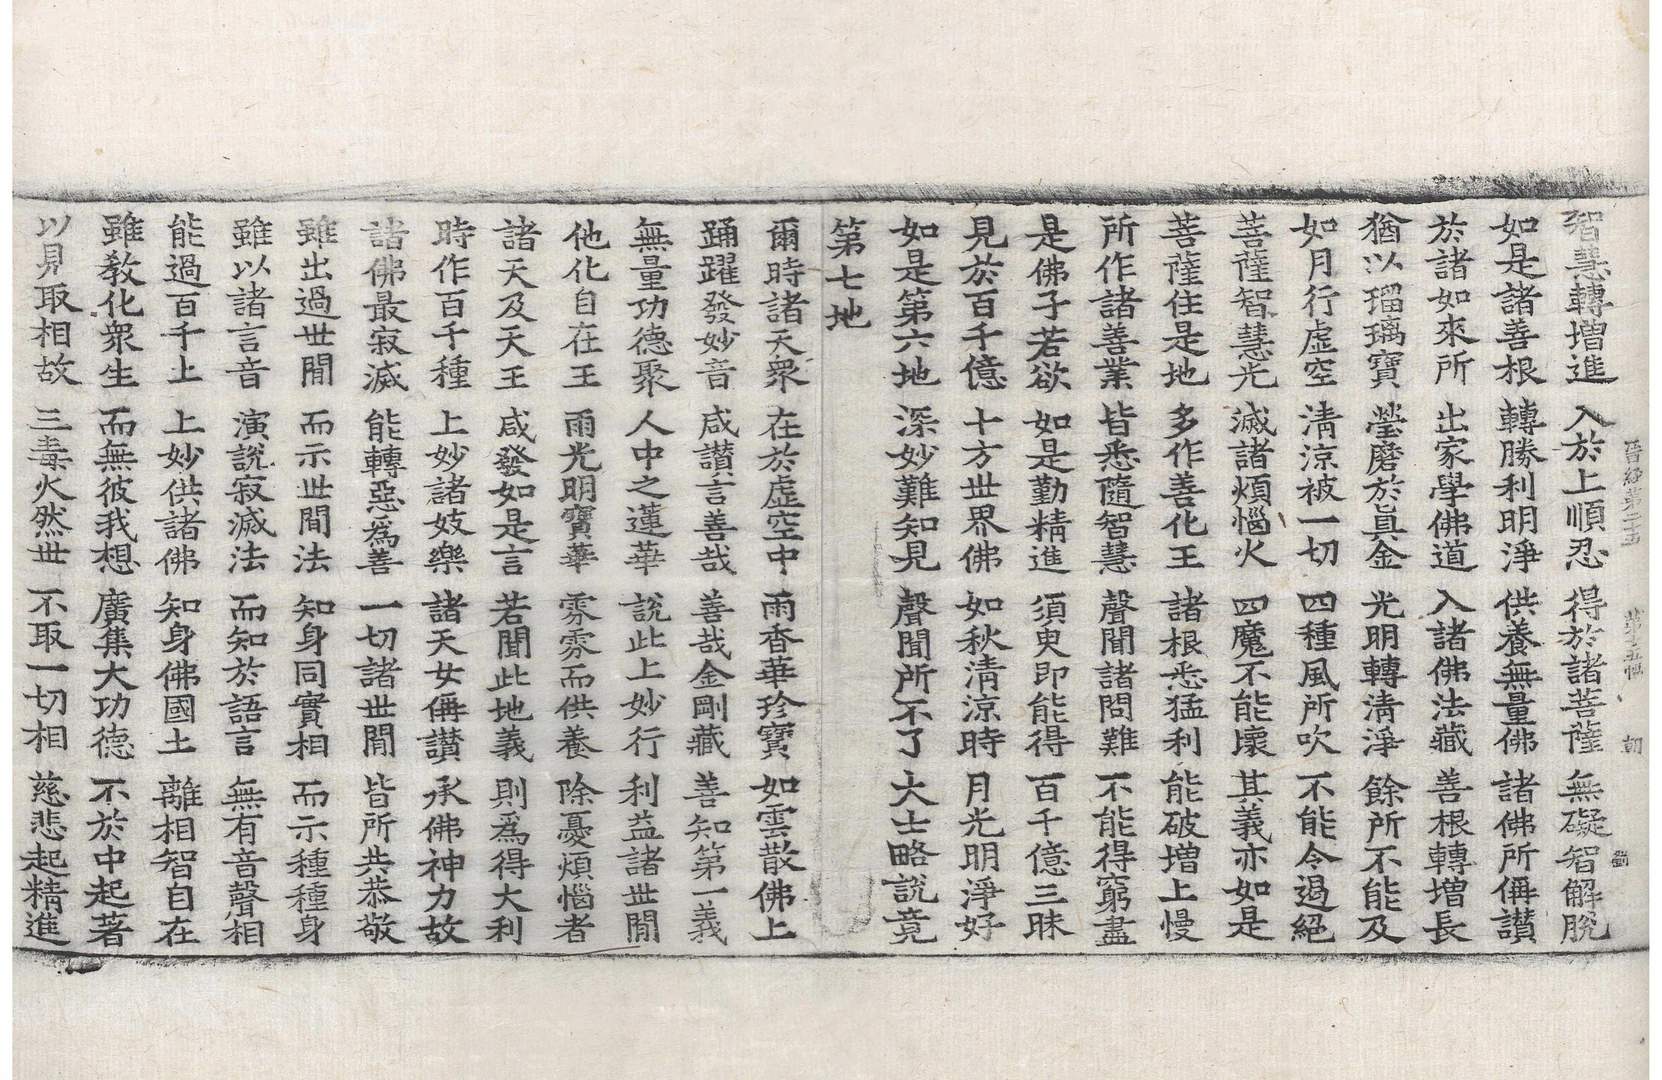 智慧轉增進 入於上順忍 得於諸菩薩 無礙智解脫
如是諸善根 轉勝利明淨 供養無量佛 諸佛所稱讃
於諸如來所 出家學佛道 入諸佛法藏 善根轉增長
猶以瑠璃寶 瑩磨於眞金 光明轉清淨 餘所不能及
如月行虛空 淸涼被一切 四種風所吹 不能令遏絕
菩薩智慧光 滅諸煩惱火 四魔不能壞 其義亦如是
菩薩住是地 多作善化王 諸根悉猛利 能破增上慢
所作諸善業 皆悉隨智慧 聲聞諸問難 不能得窮盡
是佛子若欲 如是勤精進 須臾即能得 百千億三昧
見於百千億 十方世界佛 如秋淸涼時 月光明淨好
如是第六地 深妙難知見 聲聞所不了 大士略說竟
第七地
爾時諸天衆 在於虛空中 雨香華珍寶 如雲散佛上
踊躍發妙音 咸讃言善哉 善哉金剛藏 善知第一義
無量功德聚 人中之蓮華 說此上妙行 利益諸世間
他化自在王 雨光明寶華 雰雰而供養 除憂煩惱者
諸天及天王 咸發如是言 若聞此地義 則爲得大利
時作百千種 上妙諸妓樂 諸天女稱讃 承佛神力故
諸佛最寂滅 能轉惡為善 一切諸世間 皆所共恭敬
雖出過世間 而示世間法 知身同實相 而示種種身
雖以諸言音 演說寂滅法 而知於語言 無有音聲相
能過百千上 上妙供諸佛 知身佛國土 離相智自在
雖敎化衆生 而無彼我想 廣集大功德 不於中起著
以見取相故 三毒火然世 不取一切相 慈悲起精進